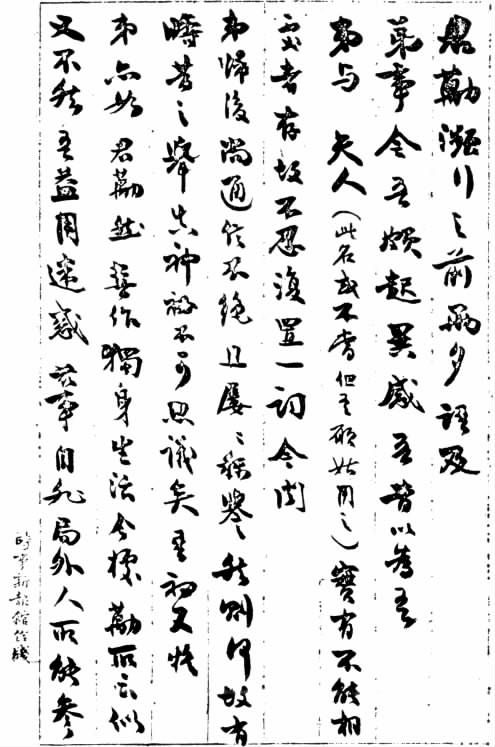 君勱瀕行之前兩夕語及
弟事令吾頗起異感吾昔以為吾
弟与 夫人(此名或不當但吾願姑用之)實有不能相
處者存故不忍復置一詞今聞
弟歸後尚通信不絕且屢〻稱譽然則何故有
疇昔之舉真神秘不可思議矣吾初又疑
弟亦如君勱然喜作獨身生活今據勱所云似
又不然吾益用迷惑茲事自非局外人所能參
時事新報館信箋